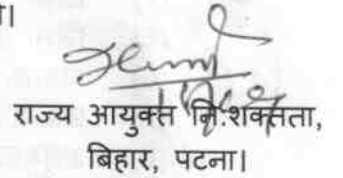 ।
राज्य आयुक्त नि:शक्तता,
बिहार, पटना।